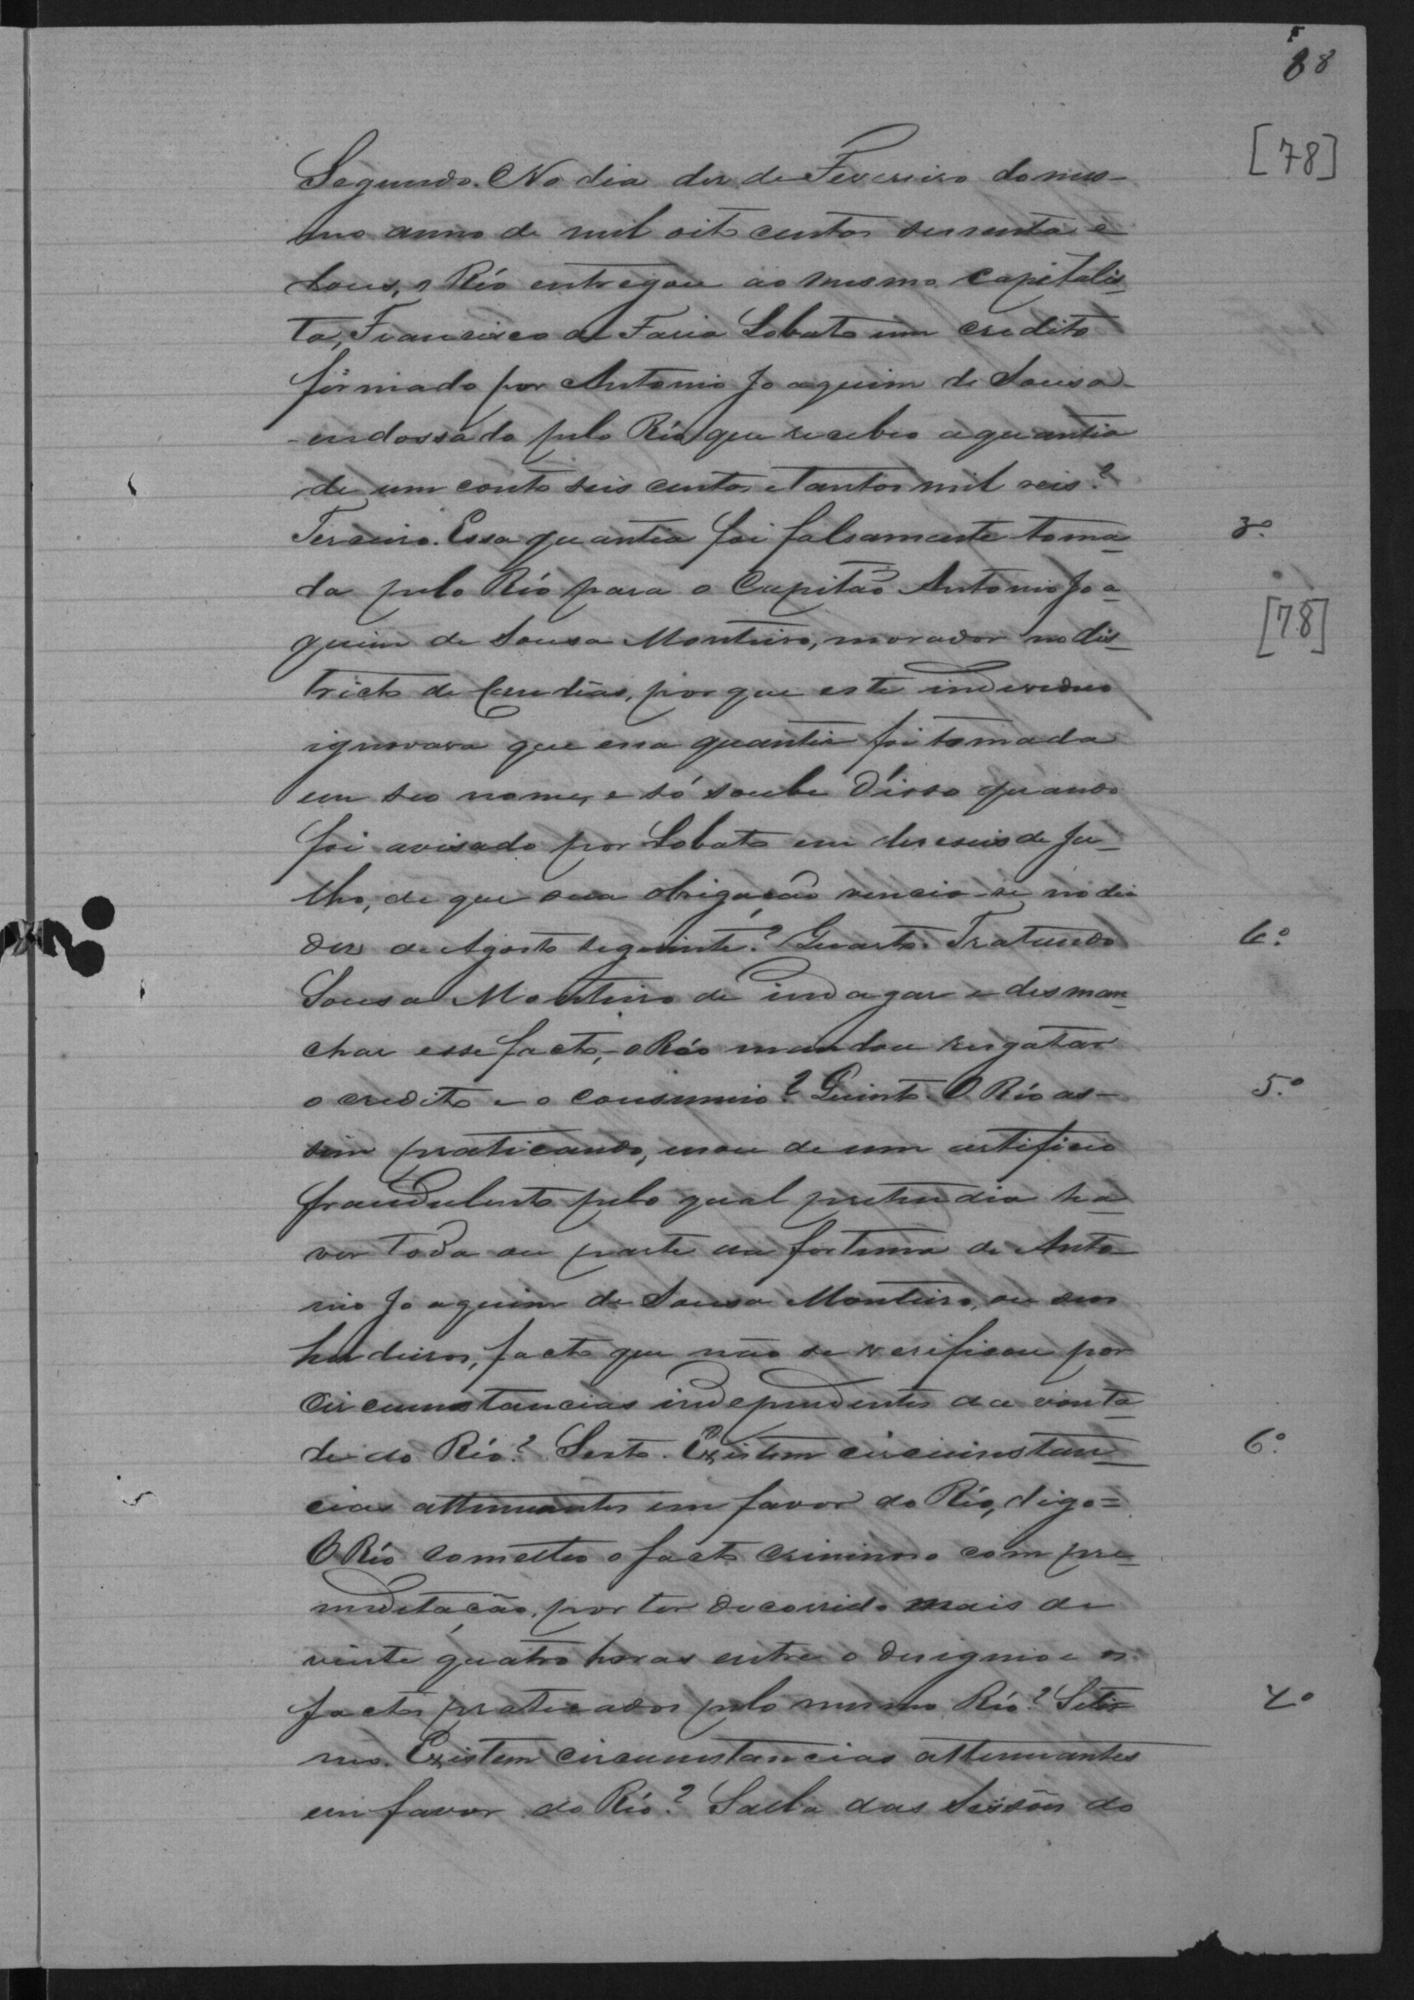 88
[78]
Segundo. No dia dez de Fevereiro do mes-
mo anno de mil oito centos sessenta e
dous, o Réo entregou ao mesmo capitalis-
ta, Francisco de Faria Lobato um credito
firmado por Antonio Joaquim de Sousa
endossado pelo Réo, que recebeo a quantia
de um conto seis centos e tantos mil reis?
Terceiro. Essa quantia foi falsamente toma- 3º
da pelo Réo para o Capitão Antonio Joa-
quim de Sousa Monteiro, morador no dis- [78]
tricto de Candêas, por que este individuo
ignorava que essa quantia foi tomada
em seo nome, e só soube d'isso quando
foi avisado por Lobato em deseseis de Ju-
lho, de que sua obrigação vencia-se no dia
dez de Agosto seguinte? Quarto. Tratando 6º
Sousa Monteiro de indagar e desman-
char esse facto, o Réo mandou resgatar
o credito e o consumio? Quinto. O Réo as- 5º
sim praticando, usou de um artificio
fraudulento pelo qual pretendia ha-
ver toda ou parte da fortuna de Anto-
nio Joaquim de Sousa Monteiro, ou seus
herdeiros, facto que não se verificou por
circumstancias independentes da vonta-
de do Réo? Sesto. Existem circumstan- 6º
cias attenuantes em favor do Réo, digo=
O Réo cometteo o facto criminoso com pre-
meditação, por ter decorrido mais de
vinte quatro horas entre o designio e os
factos praticados pelo mesmo Réo? Seti- 7º
mo. Existem circumstancias attenuantes
em favor do Réo? Salla das Sessões do